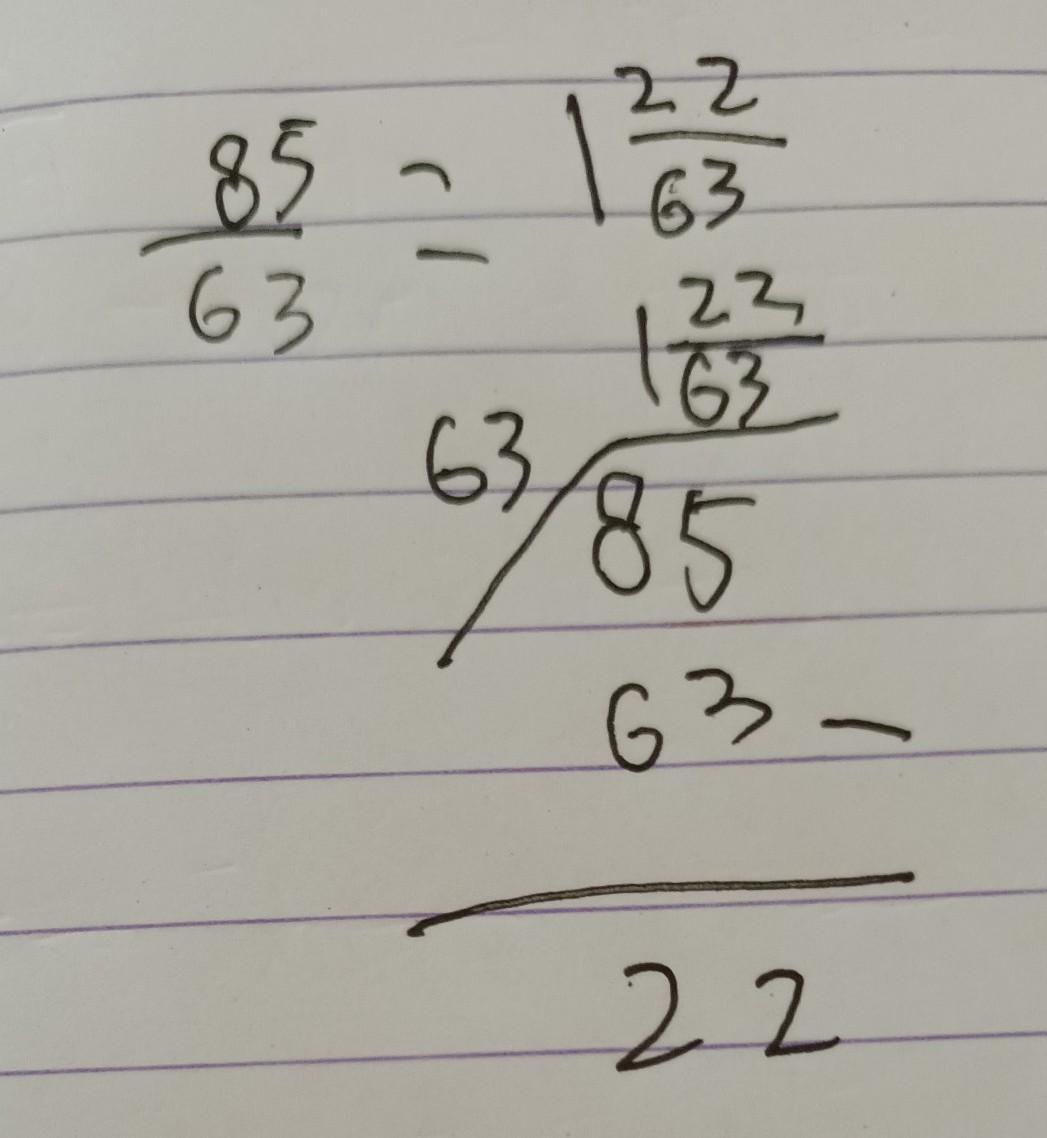 85/63 = 1 22/63
1 22/63
63 85
63 -
22